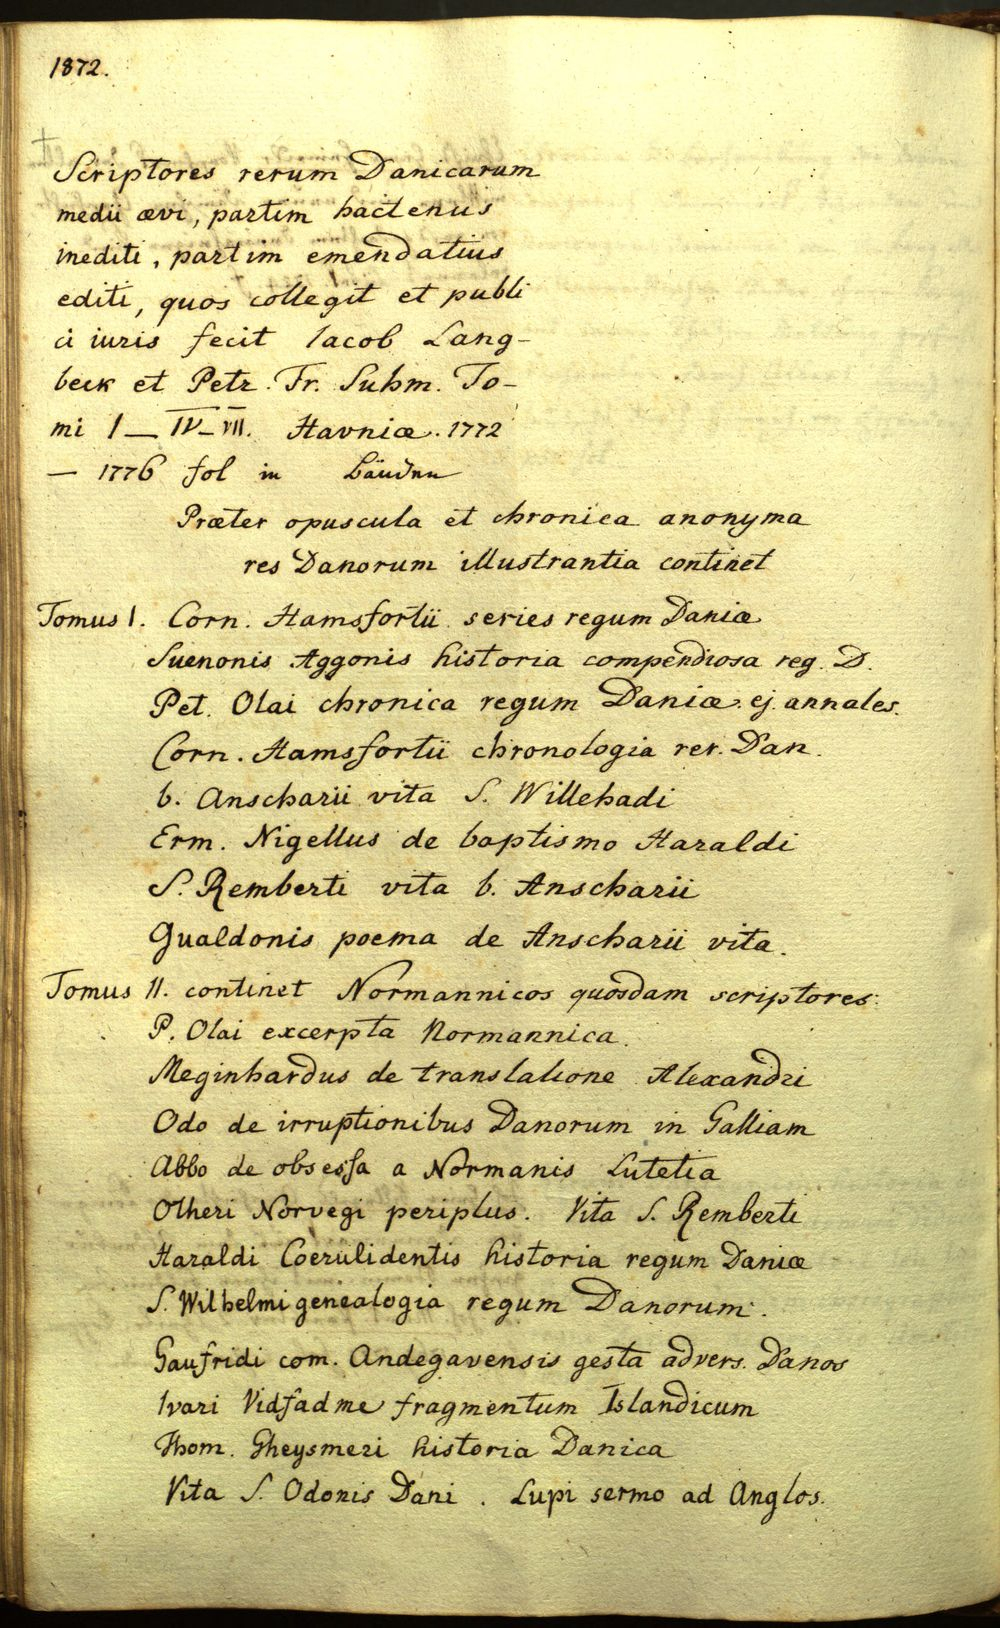 1872.
Scriptores rerum Danicarum
medii ævi, partim hactenus
inediti, partim emendatius
editi, quos collegit et publi
ci iuris fecit Iacob Lang-
beck et Petr. Fr. Suhm. To-
mi I — IV–VII. Havniæ. 1772
— 1776 fol in
Præter opuscula et chronica anonyma
res Danorum illustrantia continet
Tomus I. Corn. Hamsfortii series regum Daniæ
Suenonis Aggonis historia compendiosa reg. D.
Pet. Olai chronica regum Daniæ. ej. annales.
Corn. Hamsfortii chronologia rer. Dan.
b. Anscharii vita S. Willehadi
Erm. Nigellus de baptismo Haraldi
S. Remberti vita b. Anscharii
Gualdonis poema de Anscharii vita.
Tomus II. continet Normannicos quosdam scriptores:
P. Olai excerpta Normannica.
Meginhardus de translatione Alexandri
Odo de irruptionibus Danorum in Galliam
Abbo de obsessa a Normanis Lutetia
Otheri Norvegi periplus. Vita S. Remberti
Haraldi Coerulidentis historia regum Daniæ
S. Wilhelmi genealogia regum Danorum.
Gaufridi com. Andegavensis gesta advers. Danos
Ivari Vidfadme fragmentum Islandicum
Thom. Gheysmeri historia Danica
Vita S. Odonis Dani. Lupi sermo ad Anglos.